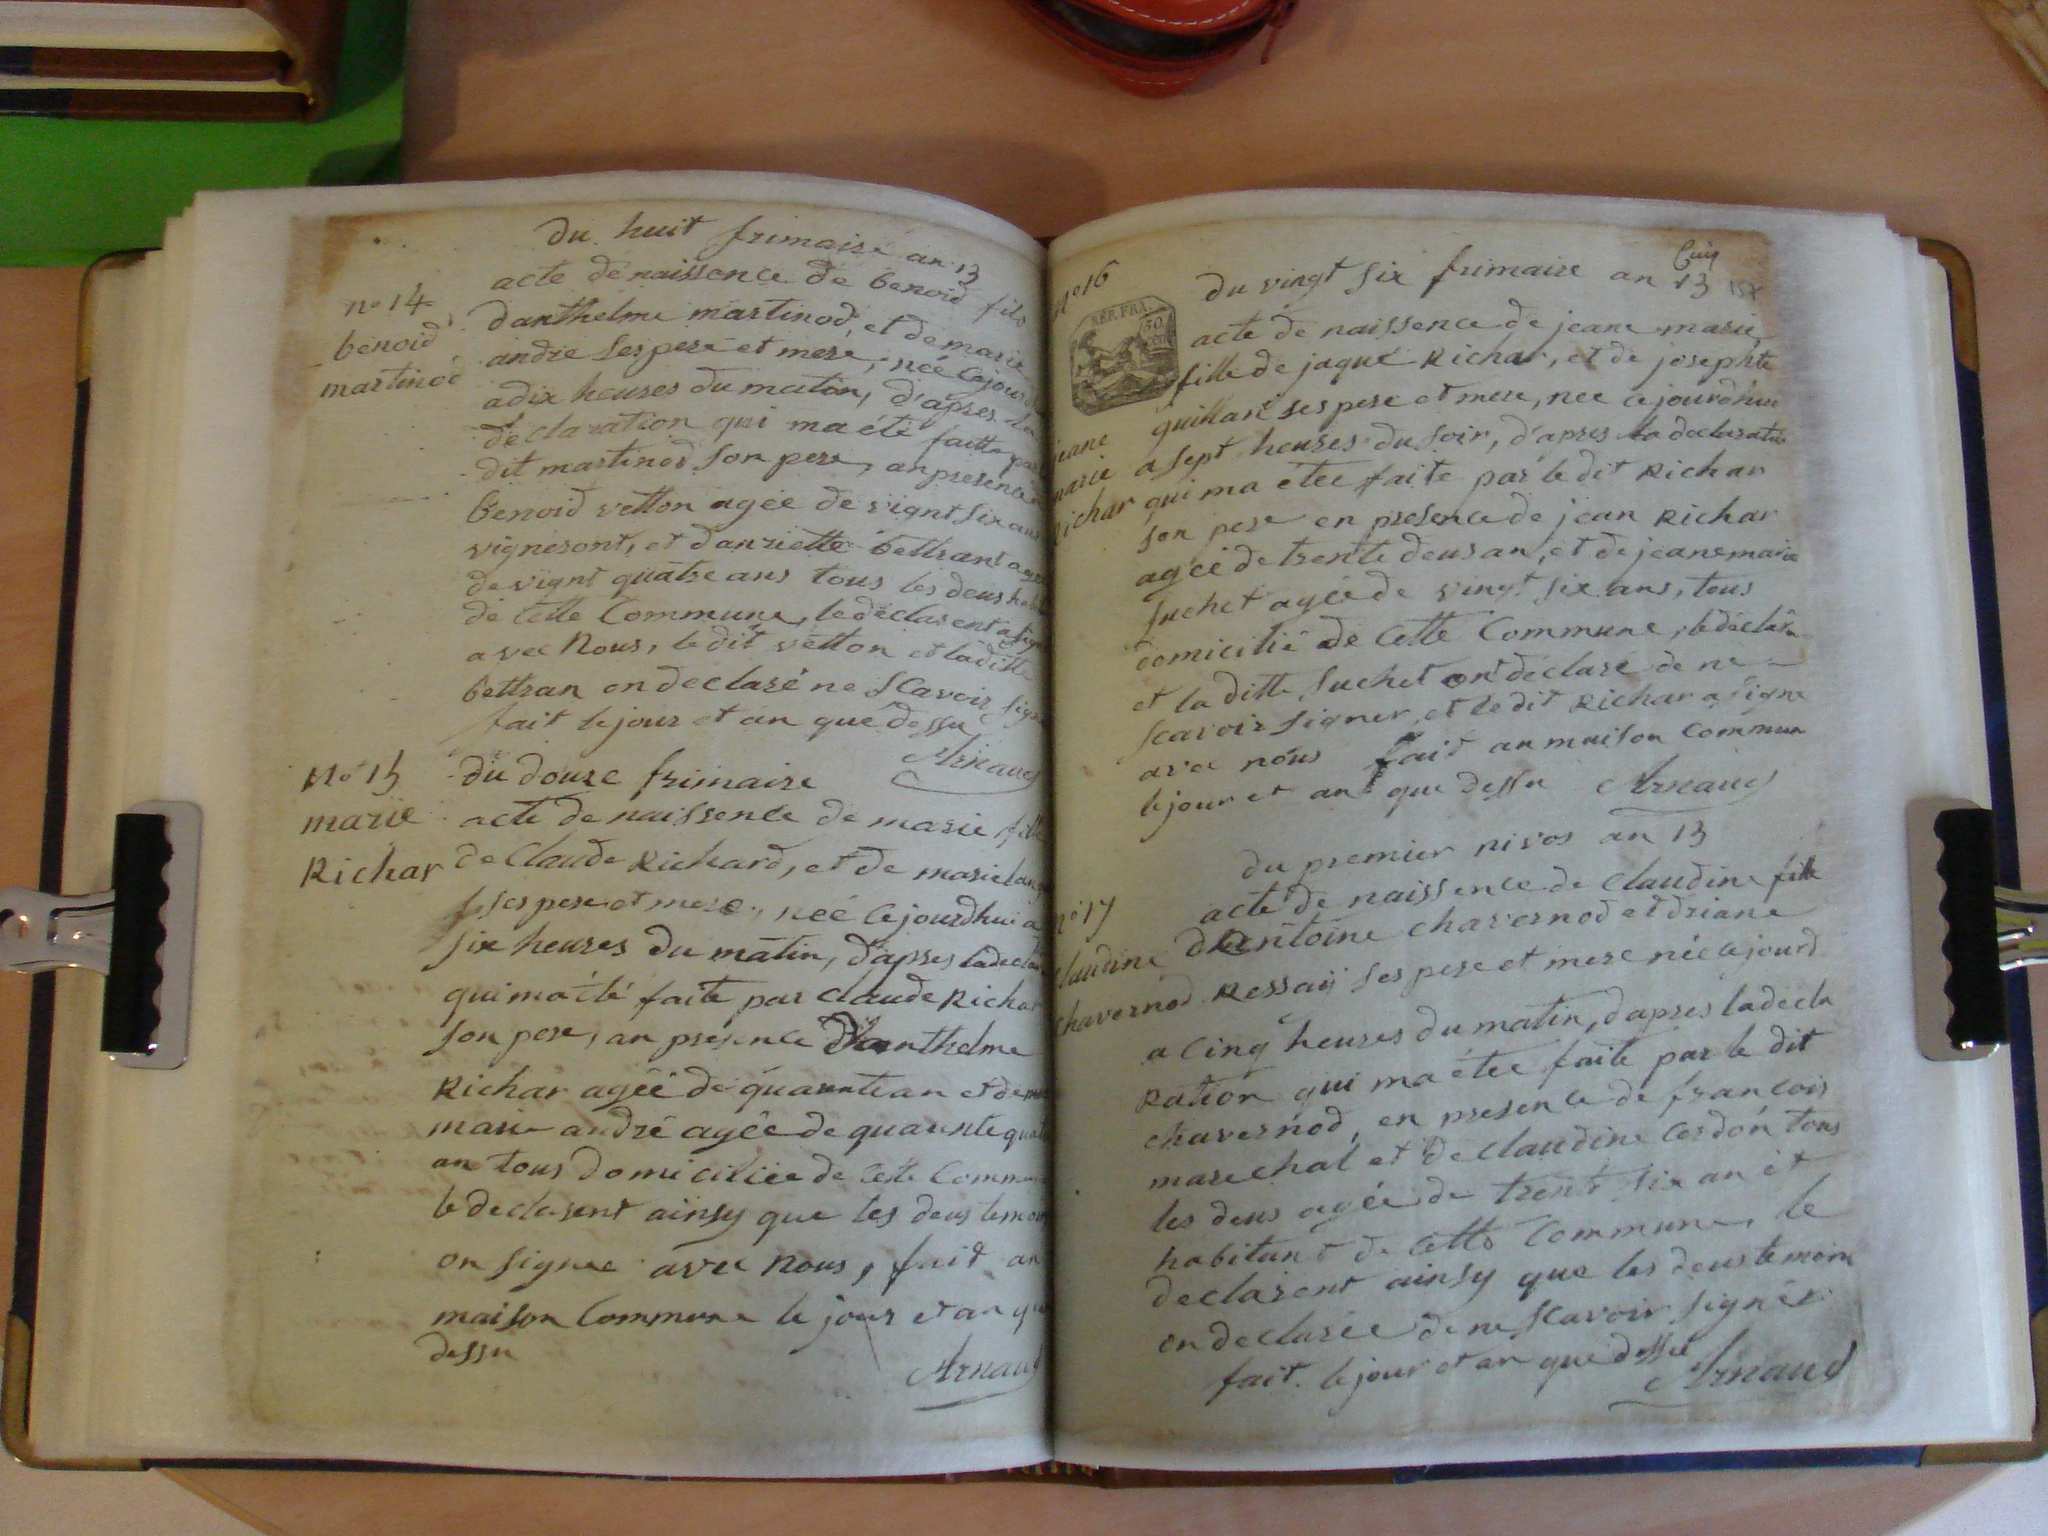 du huit frimaire an 13
n° 14
benoid
martinod
acte de naissence de benoid fils
danthelme martinod, et de marie
andre ses pere et mere, née cejourd
a dix heures du matin, d'apres la
declaration qui ma été faitte par
dit martinod son pere, an presence
benoid vetton agée de vignt six ans
vigneront, et danriette bettrant agee
de vignt quatre ans tous les deus
de cette Commune, le declarent a signe
avec Nous, le dit vetton et la ditte
bettran on declaré ne scavoir signe
fait le jour et an que dessu
Arnaud
N° 15
marie
Richar
du douze frimaire
acte de naissence de marie fille
de Claude Richard, et de marie
ses pere et mere, neé ce jourdhui a
six heures du matin, d'apres la decla
qui ma été faite par claude Richar
son pere, an présence danthelme
Richar agéé de quarantean et de
marie andré agée de quarente quat
an tous domiciliée de cette Commu
le declarent ainsy que les deus temoin
on signee avec nous, fait an
maison Commune le jour et an que
dessu
Arnaud
Cinq
N° 16
du vingt six frimaire an 13
REP. FRA.
50
jeane
marie
Richar
acte de naissence de jeane marie
fille de jaque Richar, et de josephte
guillart ses pere et mere, nee cejourdhui
a sept heures du soir, d'apres la declaration
qui ma étee faite par le dit Richar
son pere en presence de jean Richar
agéé de trente deus an, et de jeanemarie
suchet agéé de vingt six ans, tous
domicilié de Cette Commune, le déclara
et la ditte suchet ont déclaré de ne
scavoir signer, et le dit Richar a signe
avec nous fait an maison Commun
le jour et an que dessu Arnaud
du premier nivos an 13
n° 17
claudine
chavernod
acte de naissence de claudine fille
dantoine chavernod et driane
Ressaÿ ses pere et mere née cejourd
a cinq heures du matin, dapres la decla
Ration qui ma étee faite par le dit
chavernod, en presence de francois
marechal et de claudine Cordon tous
les deus agée de trent six an et
habitant de Cette Commune, le
declarent ainsy que les deus temoin
on declarée de ne scavoir signér
fait le jour et an que dessu
Arnaud